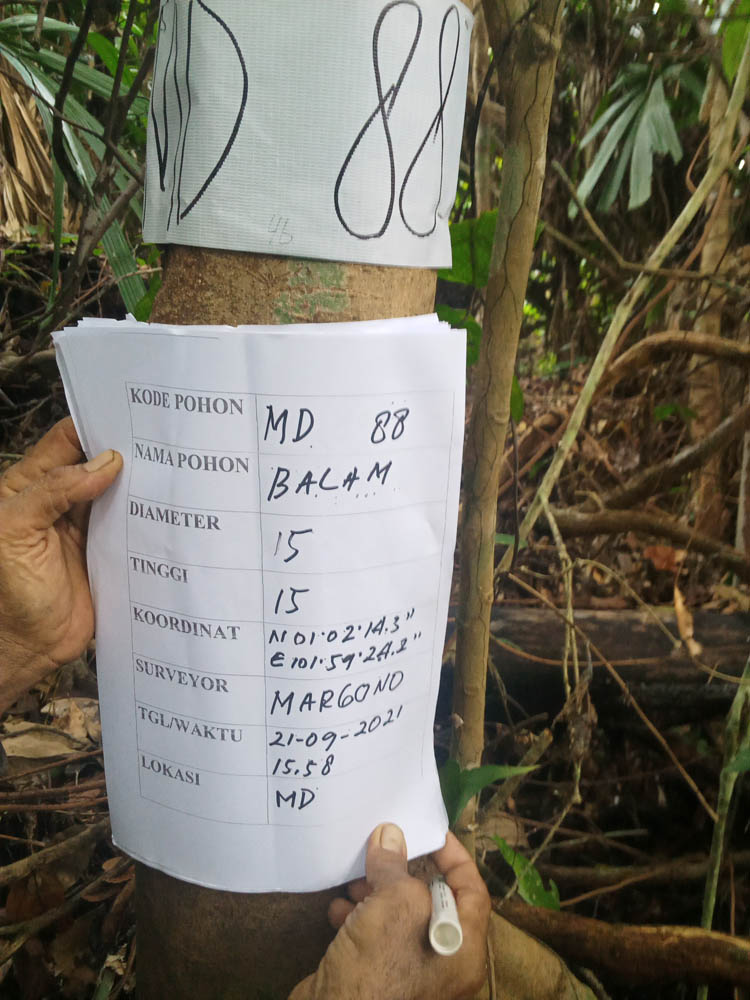 MD 88
46
KODE POHON MD 88
NAMA POHON BALAM
DIAMETER 15
TINGGI 15
KOORDINAT N 01.02.14.3"
E 101.59.24.2"
SURVEYOR MARGONO
TGL/WAKTU 21-09-2021
15.58
LOKASI MD